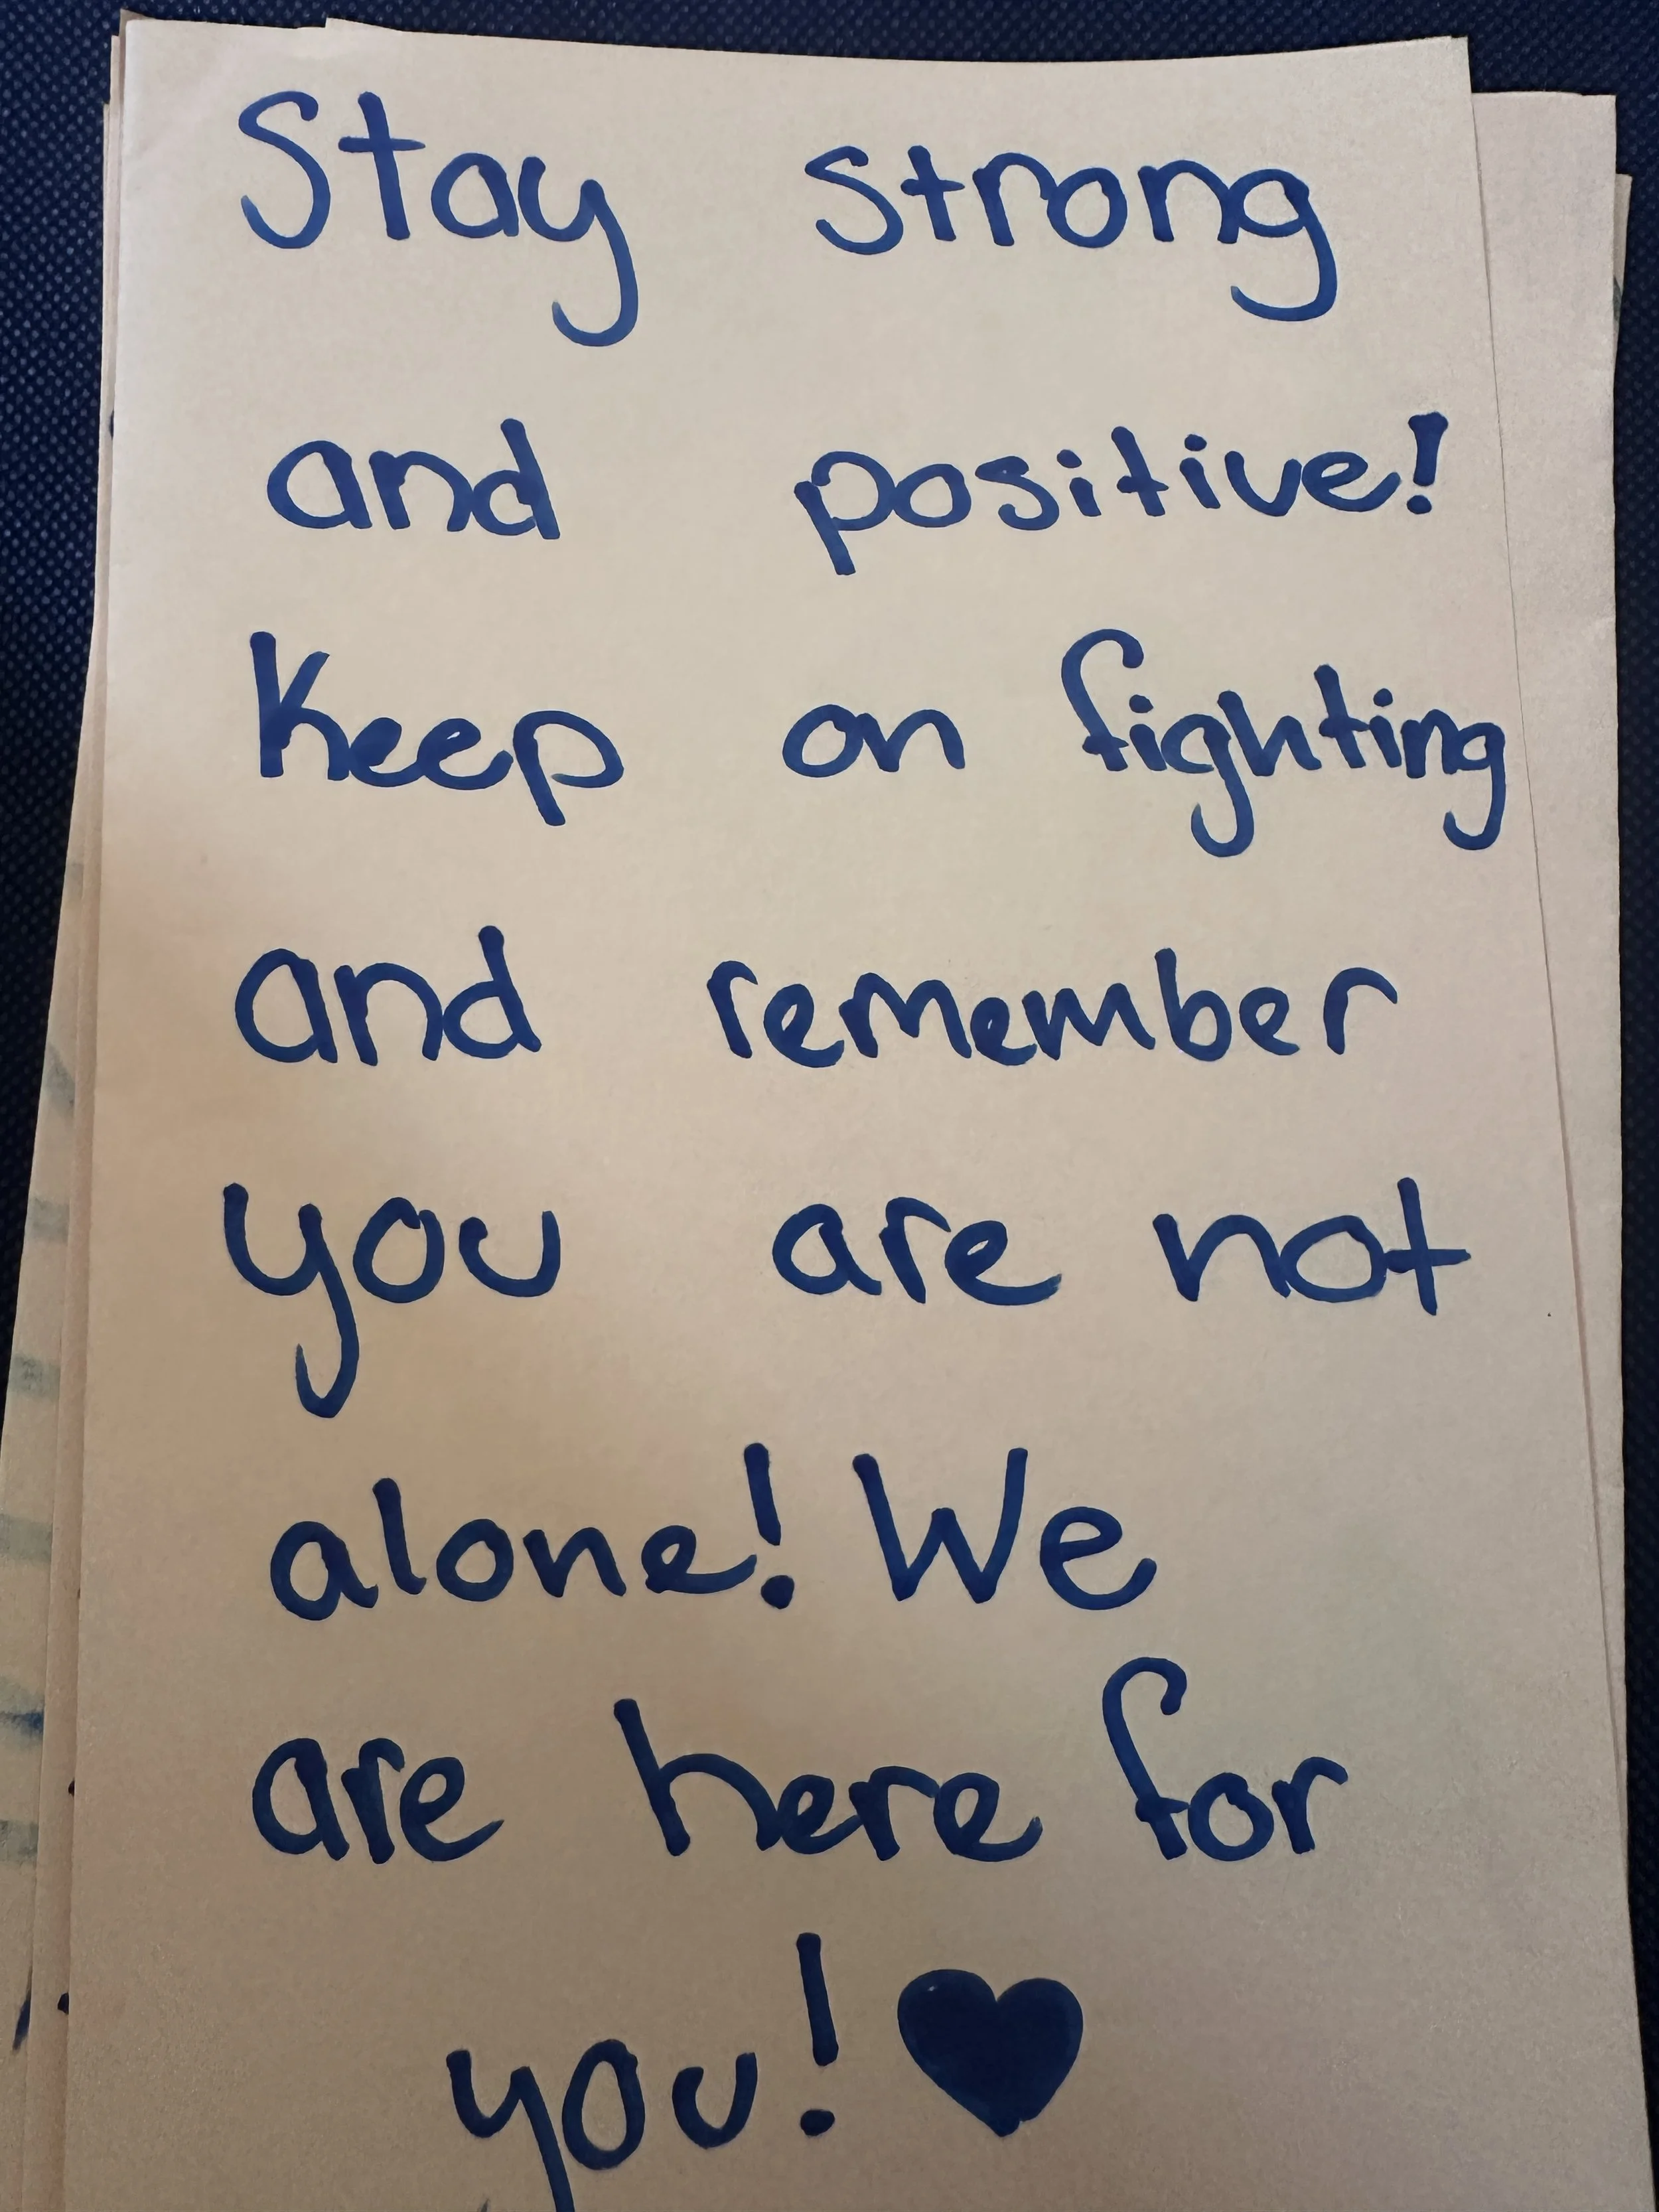 Stay strong
and positive!
Keep on fighting
and remember
you are not
alone! We
are here for
you! ♥